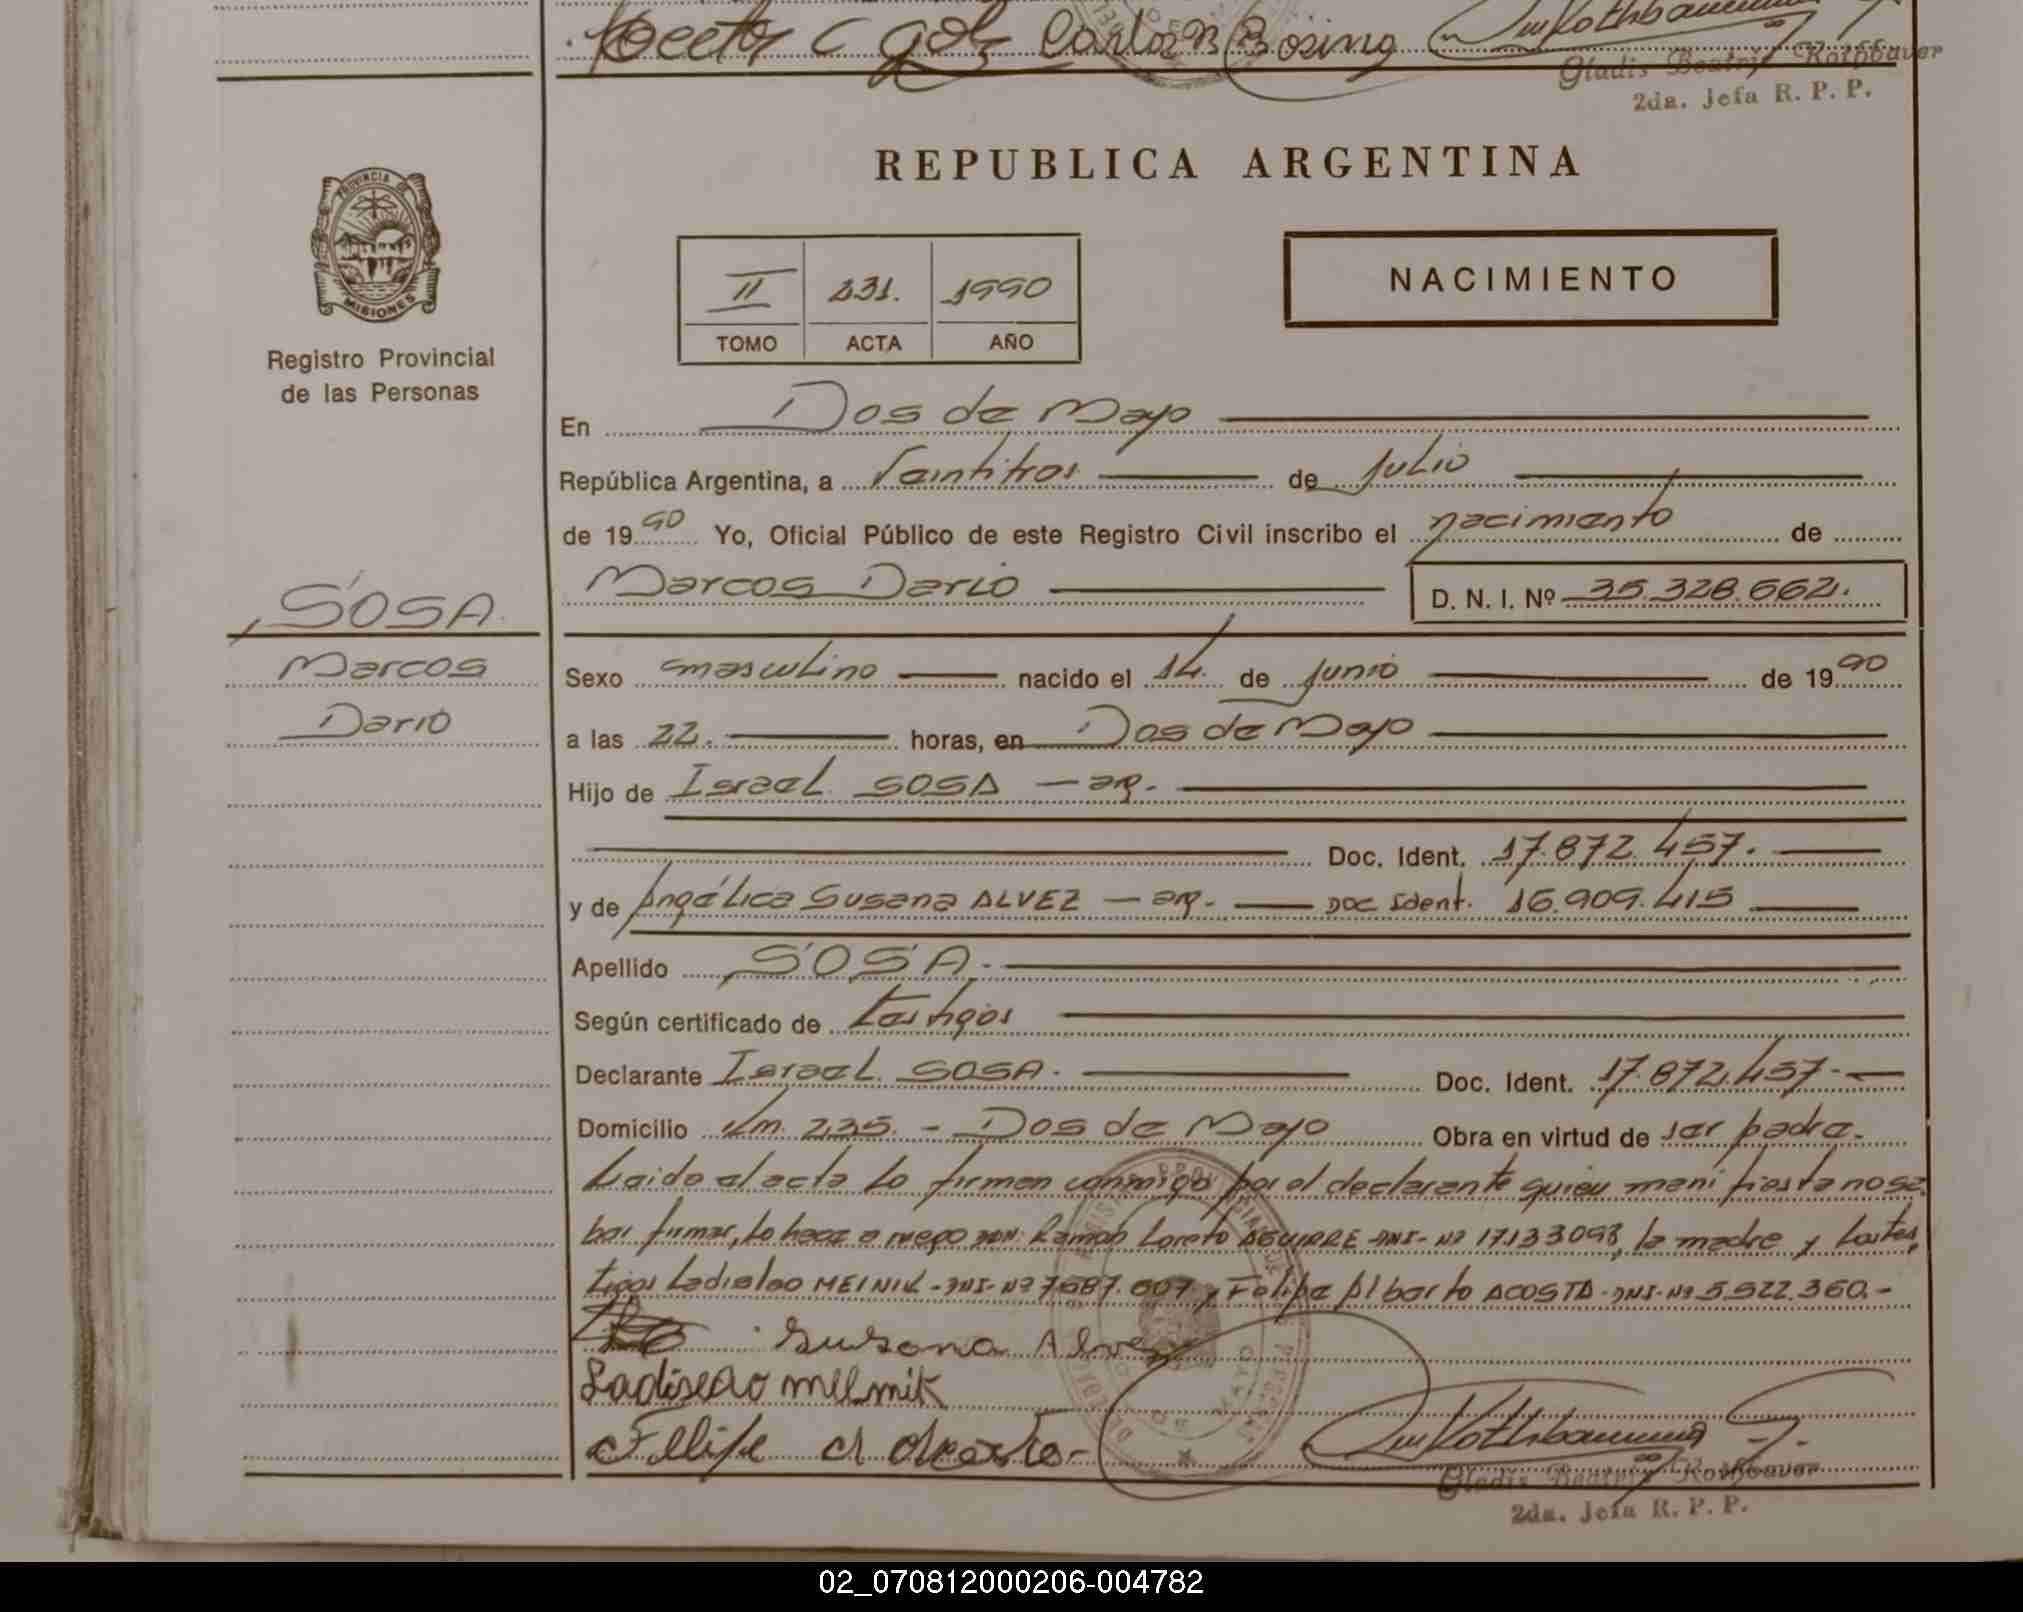 Hector C Golz Carlos B Bosing
Gladis Beatriz Rothbauer
2da. Jefa R. P. P.
REPUBLICA ARGENTINA
PROVINCIA DE
MISIONES
Registro Provincial
de las Personas
II 231. 1990
TOMO ACTA AÑO
NACIMIENTO
En Dos de Mayo
República Argentina, a Veintitres de Julio
de 1990 Yo, Oficial Público de este Registro Civil inscribo el nacimiento de
Marcos Dario D. N. I. Nº 35.328.662.
SOSA
Marcos
Dario
Sexo masculino nacido el 14 de junio de 1990
a las 22. horas, en Dos de Mayo
Hijo de Israel SOSA - ar.
Doc. Ident. 17.872.457.
y de Angélica Susana ALVEZ - ar. Doc Ident. 16.909.415
Apellido SOSA.
Según certificado de testigos
Declarante Israel SOSA. Doc. Ident. 17.872.457-
Domicilio Km. 235. - Dos de Mayo Obra en virtud de ser padre.
Leida el acta lo firman conmigo por el declarante quien manifiesta no sa
ber firmar, lo hace a ruego Don. Ramon Loreto AGUIRRE-DNI-Nº 17.133.098, la madre y los tes,
tigos Ladislao MELNIK-DNI-Nº 7.687.607 y Felipe Alberto ACOSTA-DNI-Nº 5.522.360.-
Susana Alvez
LadisEao mElmik
Felife A Acosta-
Gladis Beatriz Rothbauer
2da. Jefa R. P. P.
02_070812000206-004782